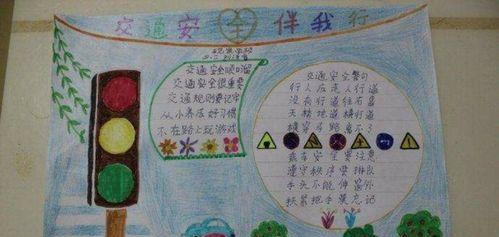 交通安全伴我行
交通安全顺口溜
交通安全很重要
交通规则要记牢
从小养成好习惯
不在路上玩游戏
交通安全警句
行人应走人行道
没有行道往右靠
天桥地道横行道
横穿马路离不了
乘车安全要注意
遵守秩序要排队
手头不能伸窗外
扶紧把手莫忘记